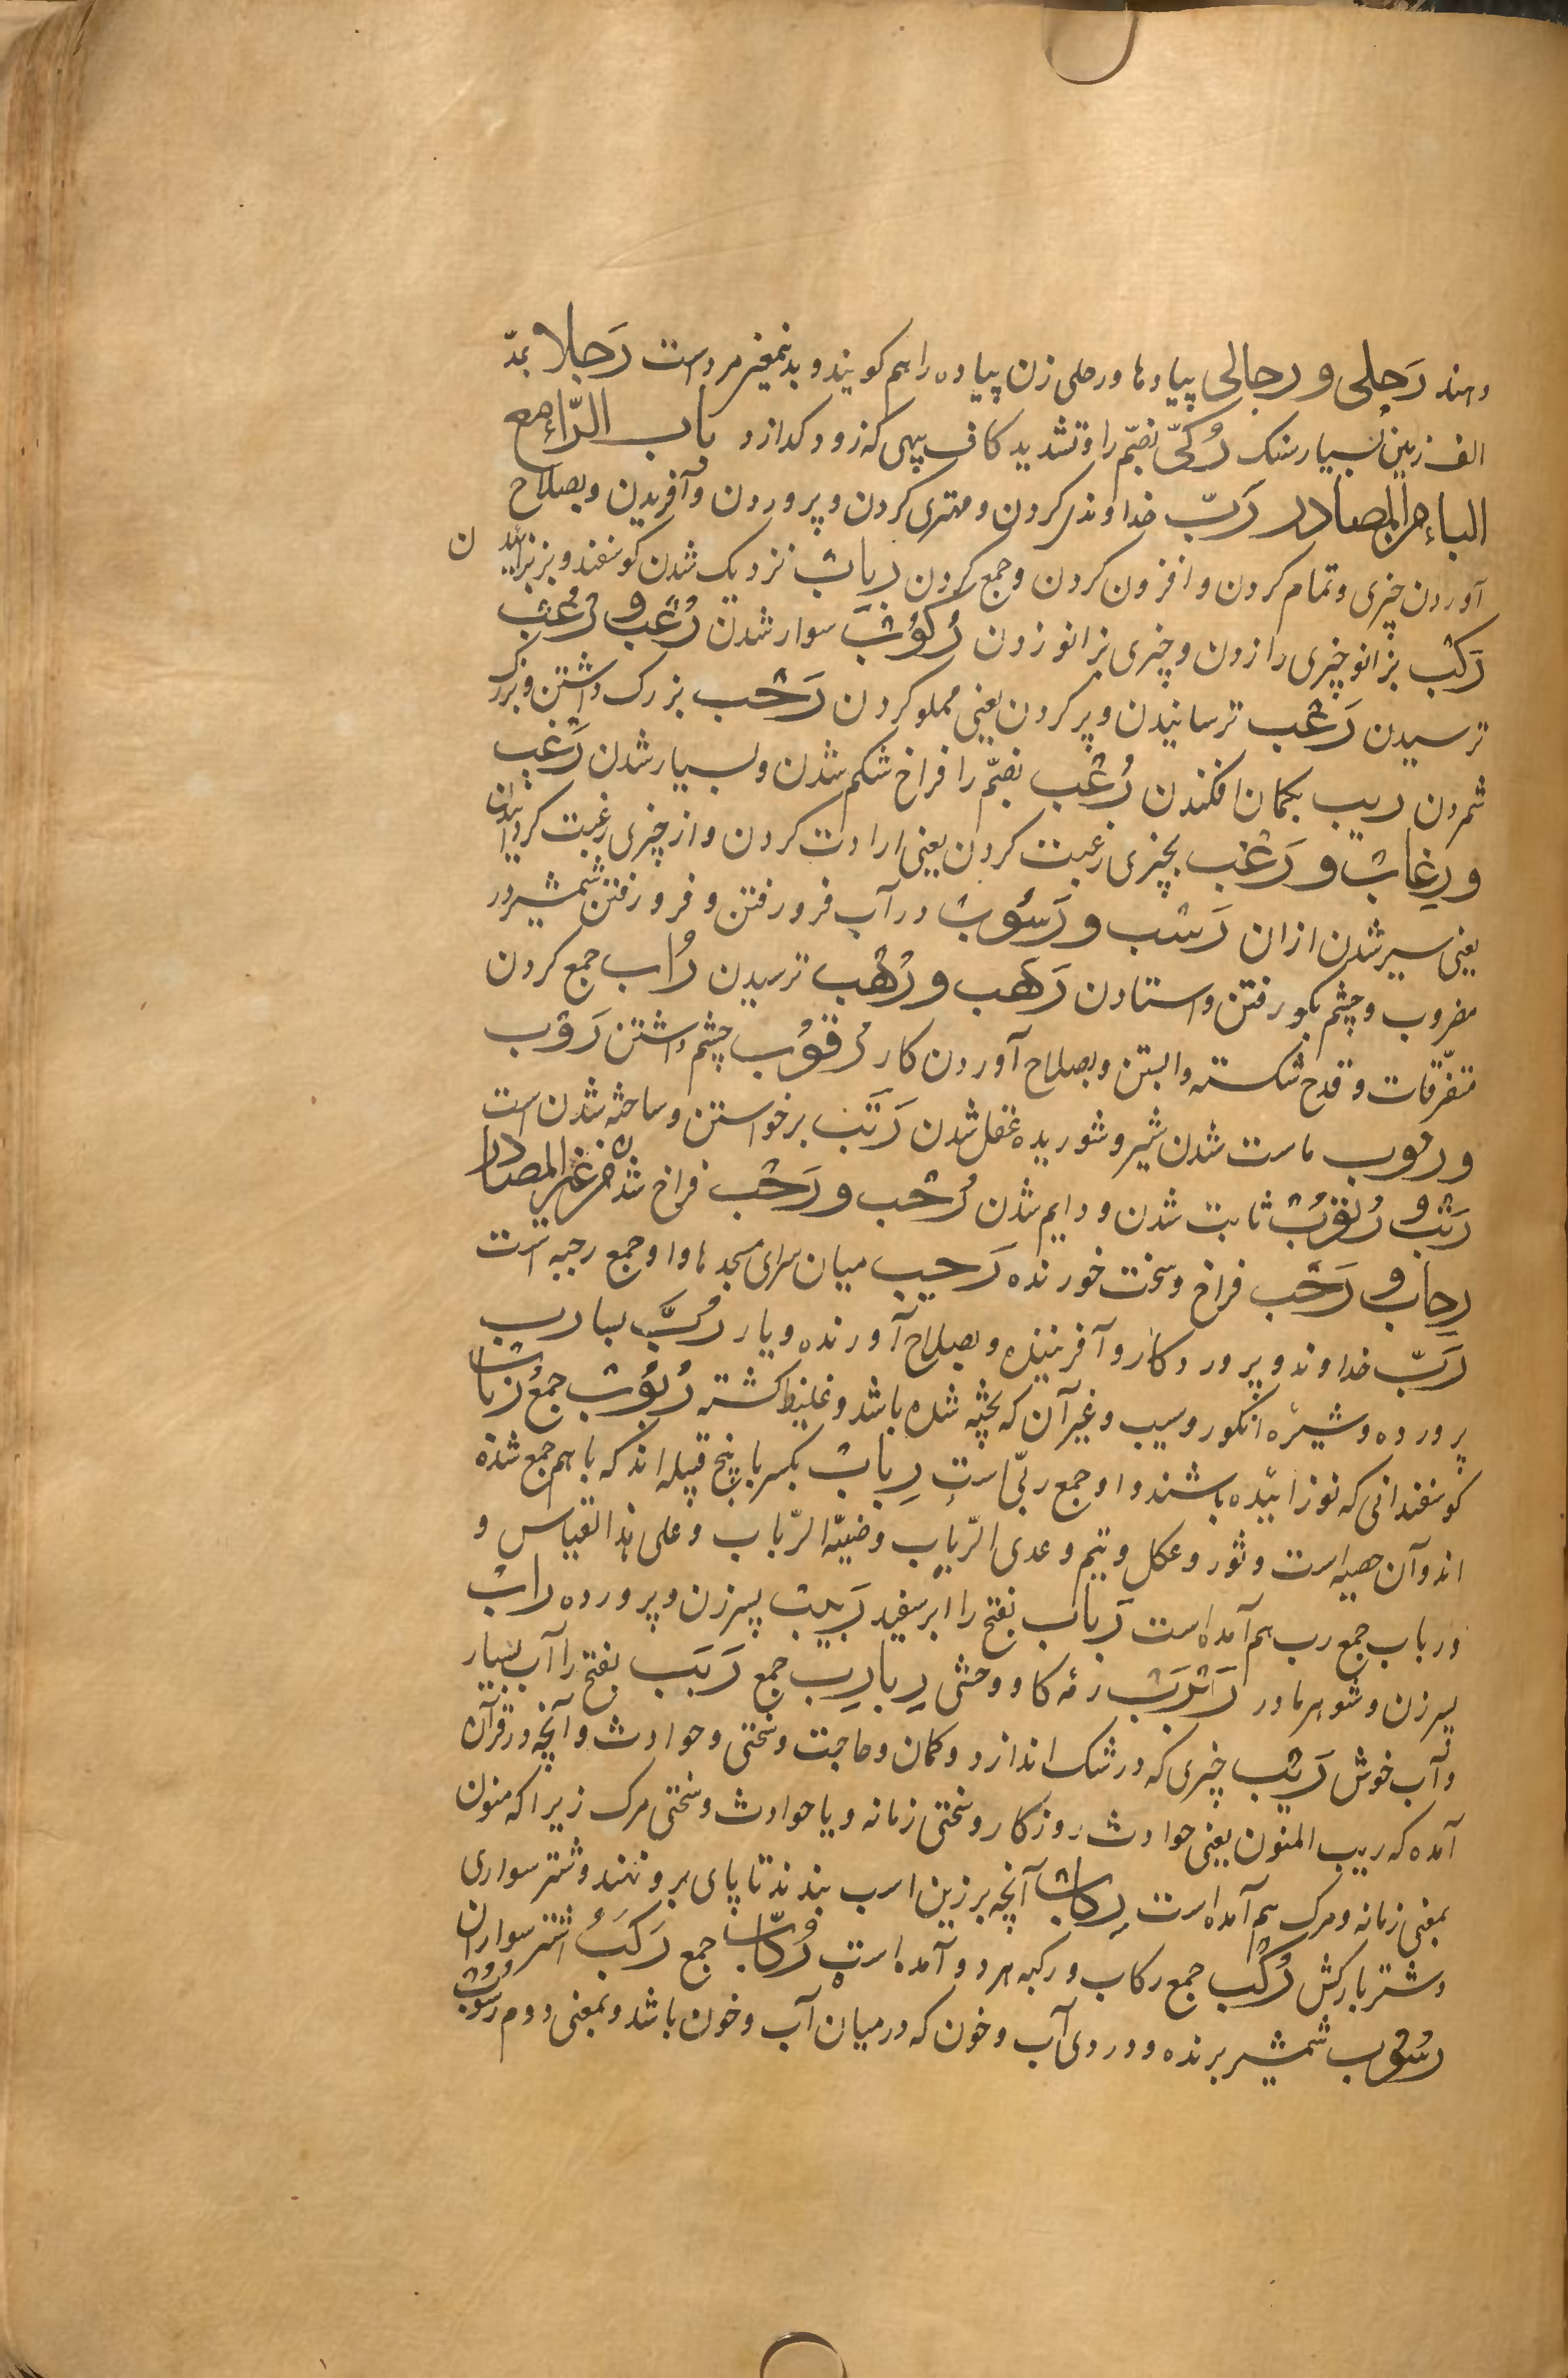 دهند رَجلی و رجالی پیادها و رجلی زن پیاده را هم کویند و بدینمعنی مرداست رَجلا بمدّ
الف زمین بسیار سنک رُکّی بضمّ را و تشدید کاف پیهی که زود کدازد باب الرّاء مع
الباء من المصادر رَبّ خداوندی کردن و مهتری کردن و پروردن و آفریدن و بصلاح
آوردن چیزی و تمام کردن و افزون کردن و جمع کردن رباب نزدیک شدن کوسفند و بز بزائیدن
رَکب بزانو چیزی را زدن و چیزی بزانو زدن رُکُوب سوار شدن رُعب و رُعُب
ترسیدن رَعب ترسانیدن و پر کردن یعنی مملو کردن رَجب بزرک داشتن و بزرک
شمردن ریب بکمان افکندن رُغب بضمّ را فراخ شکم شدن و بسیار شدن رَغب
و رِغاب و رَغَب بچیزی رغبت کردن یعنی ارادت کردن و از چیزی رغبت کردانیدن
یعنی سیر شدن ازان رَسب و رَسُوب در آب فرو رفتن و فرو رفتن شمشیر در
مضروب و چشم بکو رفتن و استادن رَهب و رُهب ترسیدن رُاب جمع کردن
متفرّقات و قدح شکسته وابستن و بصلاح آوردن کار رُقُوب چشم داشتن رَوب
و رئوب ماست شدن شیر و شوریده عقل شدن رَتب برخواستن و ساخته شدن است
رَتب و رُتُوب ثابت شدن و دایم شدن رُحب و رَحَب فراخ شدن من غیر المصادر
رِحاب و رَحب فراخ و سخت خورنده رَحیب میان سرای مسجدها و او جمع رحبه است
رَبّ خداوند و پروردکار و آفریننده و بصلاح آورنده و یار رُبّ بسا رب
پرورده و شیرهٔ انکور و سیب و غیر آن که پخته شده باشد و غلیظ کشته رُبُوب جمع رُباب
کوسفندانی که نوزائیده باشند و او جمع ربّی است رِباب بکسر با پنج قبیله اند که با هم جمع شده
اند و آن ضبه است و ثور و عکل و تیم و عدی الرّباب و ضبیّة الرّباب و علی هذا القیاس و
و رباب جمع رب هم آمده است رَباب بفتح را ابر سفید رَبیب پسر زن و پرورده رابّ
پسر زن و شوهر مادر رَبرَب رمه کاو وحشی رِبارِب جمع رَبَب بفتح را آب بسیار
و آب خوش رَیب چیزی که در شک اندازد و کمان و حاجت و سختی و حوادث و آنچه در قرآن
آمده که ریب المنون یعنی حوادث روزکار و سختی زمانه و یا حوادث و سختی مرک زیرا که منون
بمعنی زمانه و مرک هم آمده است رِکاب آنچه بر زین اسب بندند تا پای بر و نهند و شتر سواری
و شتر بارکش رُکُب جمع رکاب و رکبه هر دو آمده است رُکّاب جمع رَکبُ اشتر سواران
رسُوب شمشیر برنده و دُردی آب و خون که در میان آب و خون باشد و بمعنی دوم رسُوب